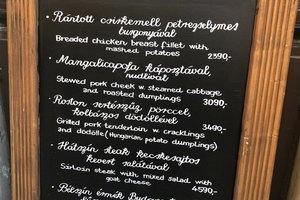 • Rántott csirkemell petrezselymes
burgonyával
Breaded chicken breast fillet with
mashed potatoes 2390,-
• Mangalicapofa káposztával,
nudlival
Stewed pork cheek w. steamed cabbage
and roasted dumplings 3090,-
• Roston sertésszűz pörccel,
kolbászos dödöllével
Grilled pork tenderloin w. cracklings 3490,-
and dödölle (Hungarian potato dumplings)
• Hátszín steak kecskesajtos
kevert salátával
Sirloin steak with mixed salad with
goat cheese 4590,-
• Bélszín érmék